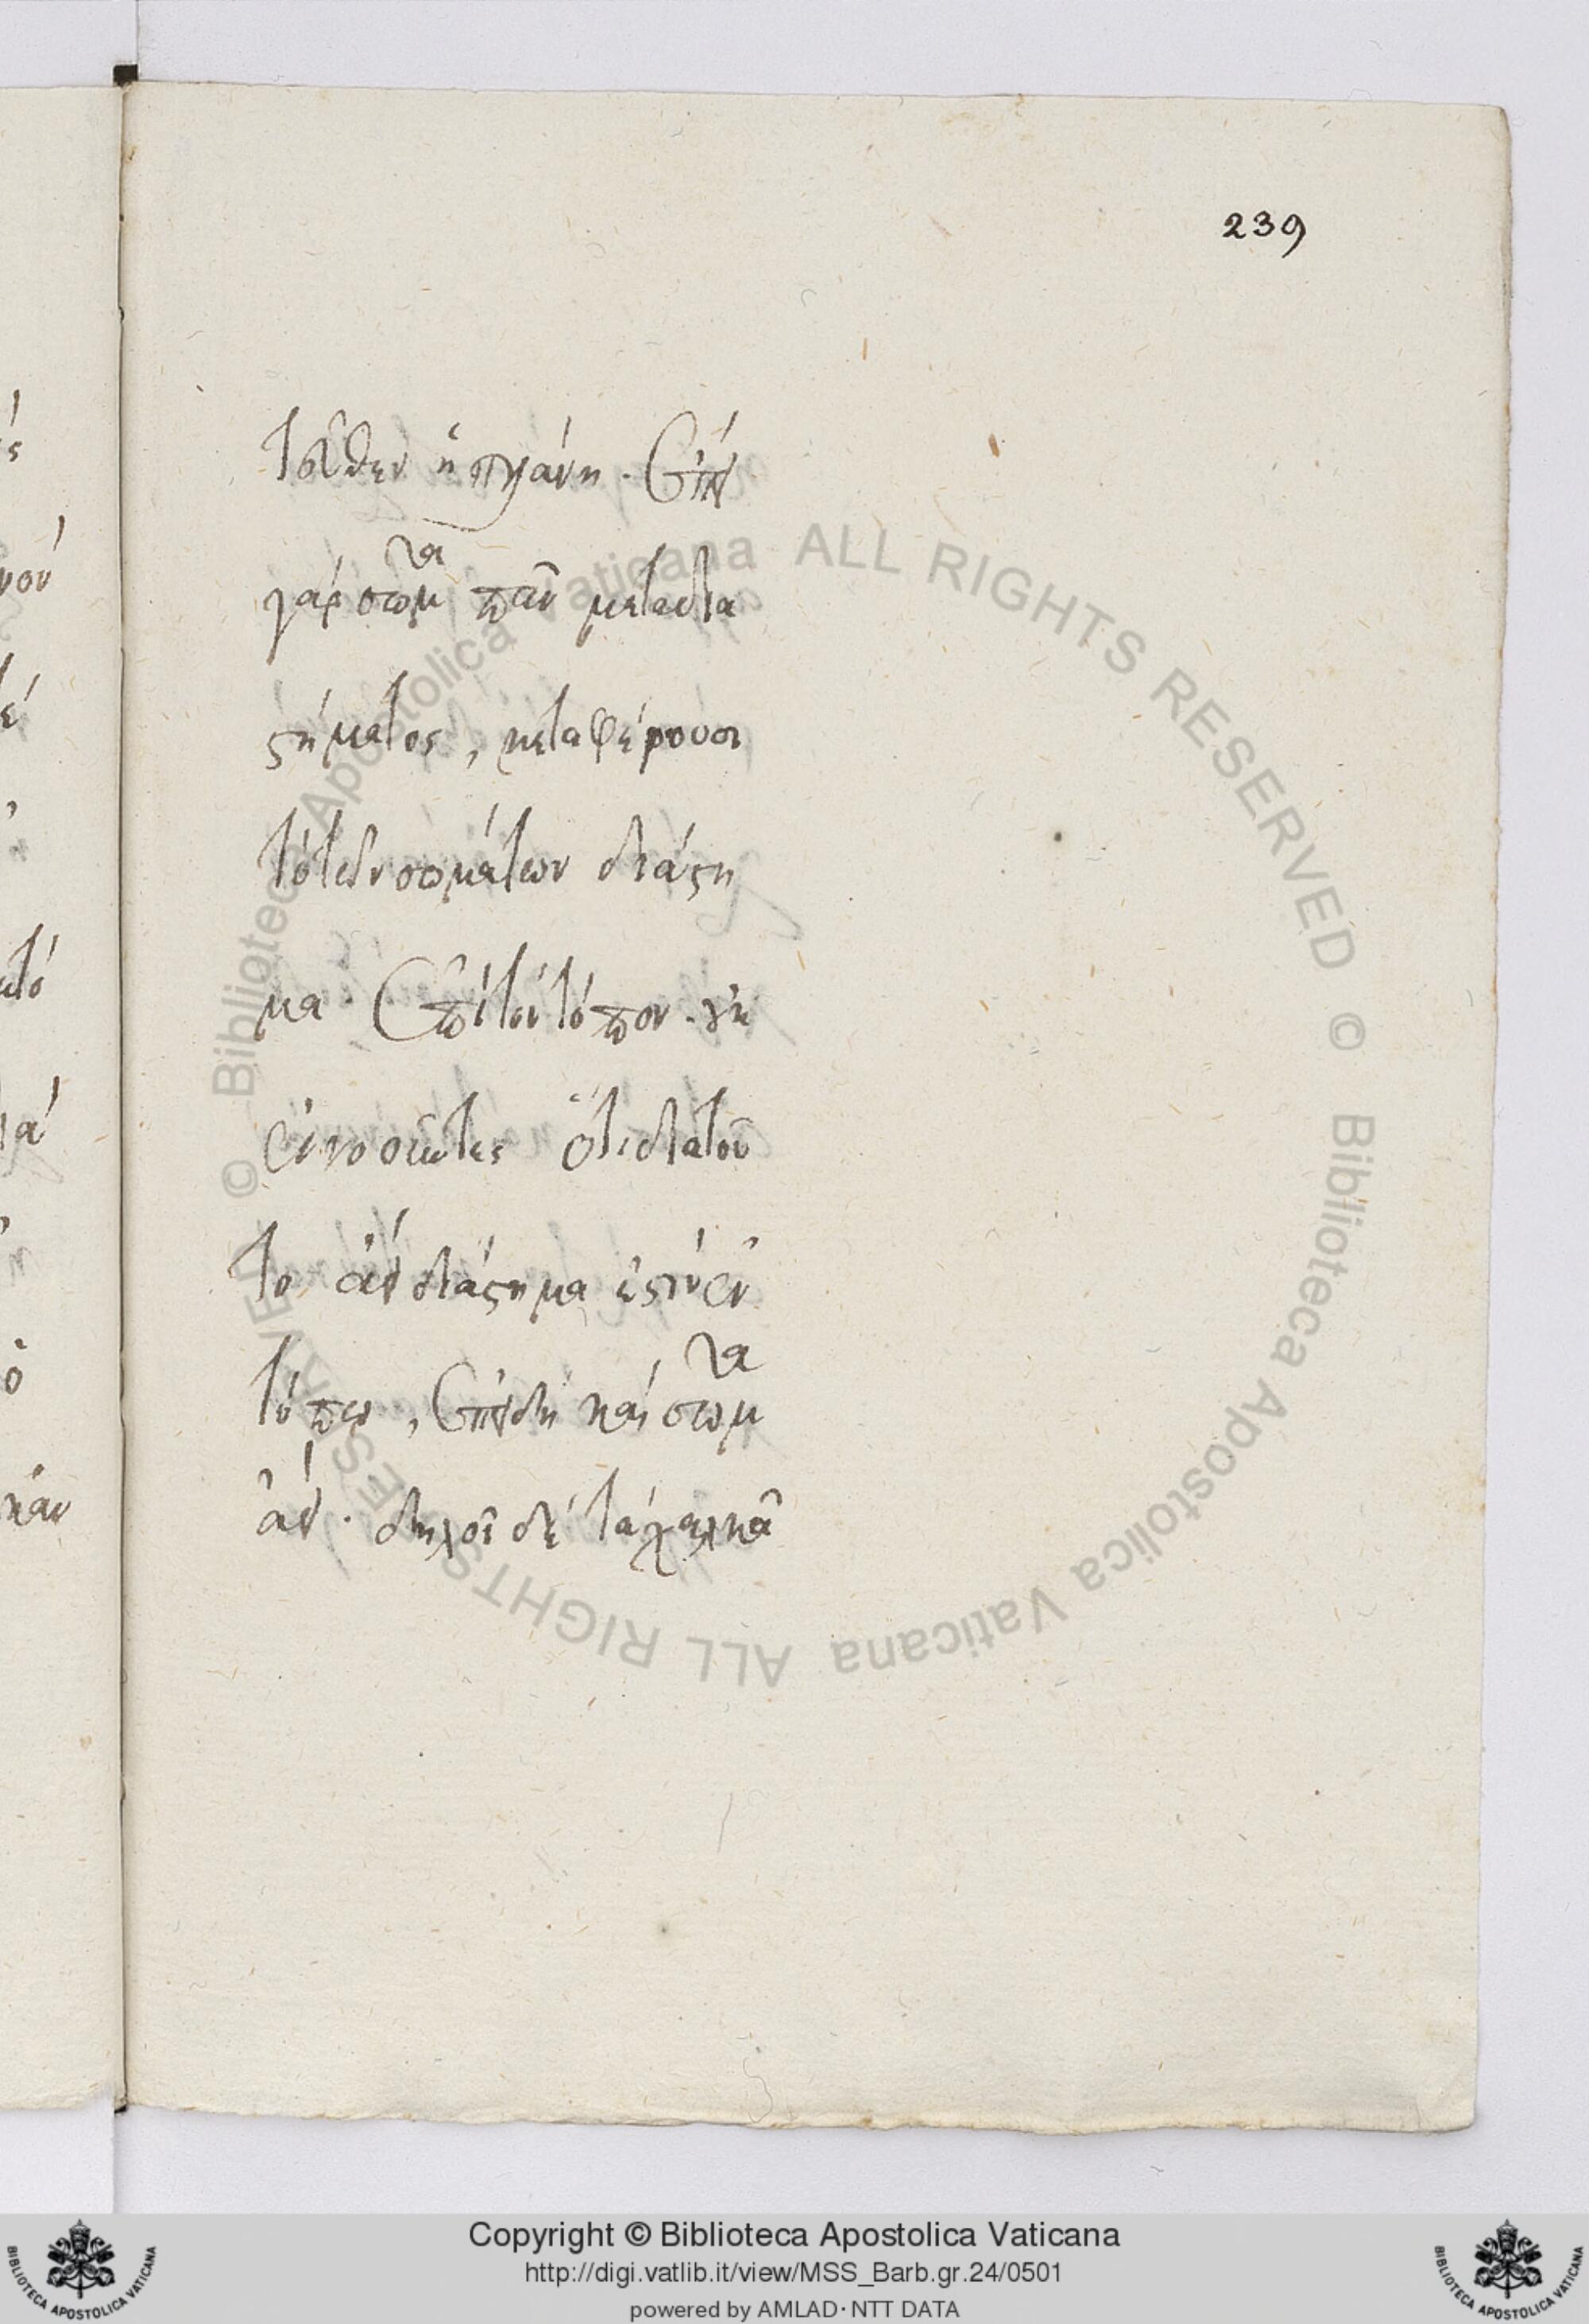 239
τοῦθεν ἡ πλάνη. ἐπεὶ
γὰρ σῶμα πᾶν μετὰ δια
στήματος, μεταφέρουσι
τὸ τῶν σωμάτων διάστη
μα ἐπὶ τὸν τόπον. οὐκ
ἐννοοῦντες ὅτι διὰ τοῦ
το ἂν διάστημα ἐστιν ἐν
τόπω, ἐπειδὴ καὶ σῶμα
ἄν. δηλοῖ δὲ τὰ χαλκᾶ
νον
τά
ό
καν
© Biblioteca Apostolica Vaticana ALL RIGHTS RESERVED © Biblioteca Apostolica Vaticana ALL RIGHTS RESERVED
Copyright © Biblioteca Apostolica Vaticana
http://digi.vatlib.it/view/MSS_Barb.gr.24/0501
powered by AMLAD · NTT DATA
BIBLIOTECA APOSTOLICA VATICANA
BIBLIOTECA APOSTOLICA VATICANA